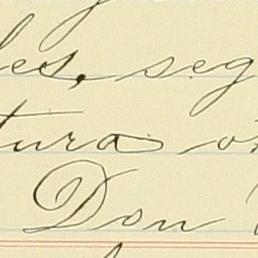 les, seg
tura o
Don